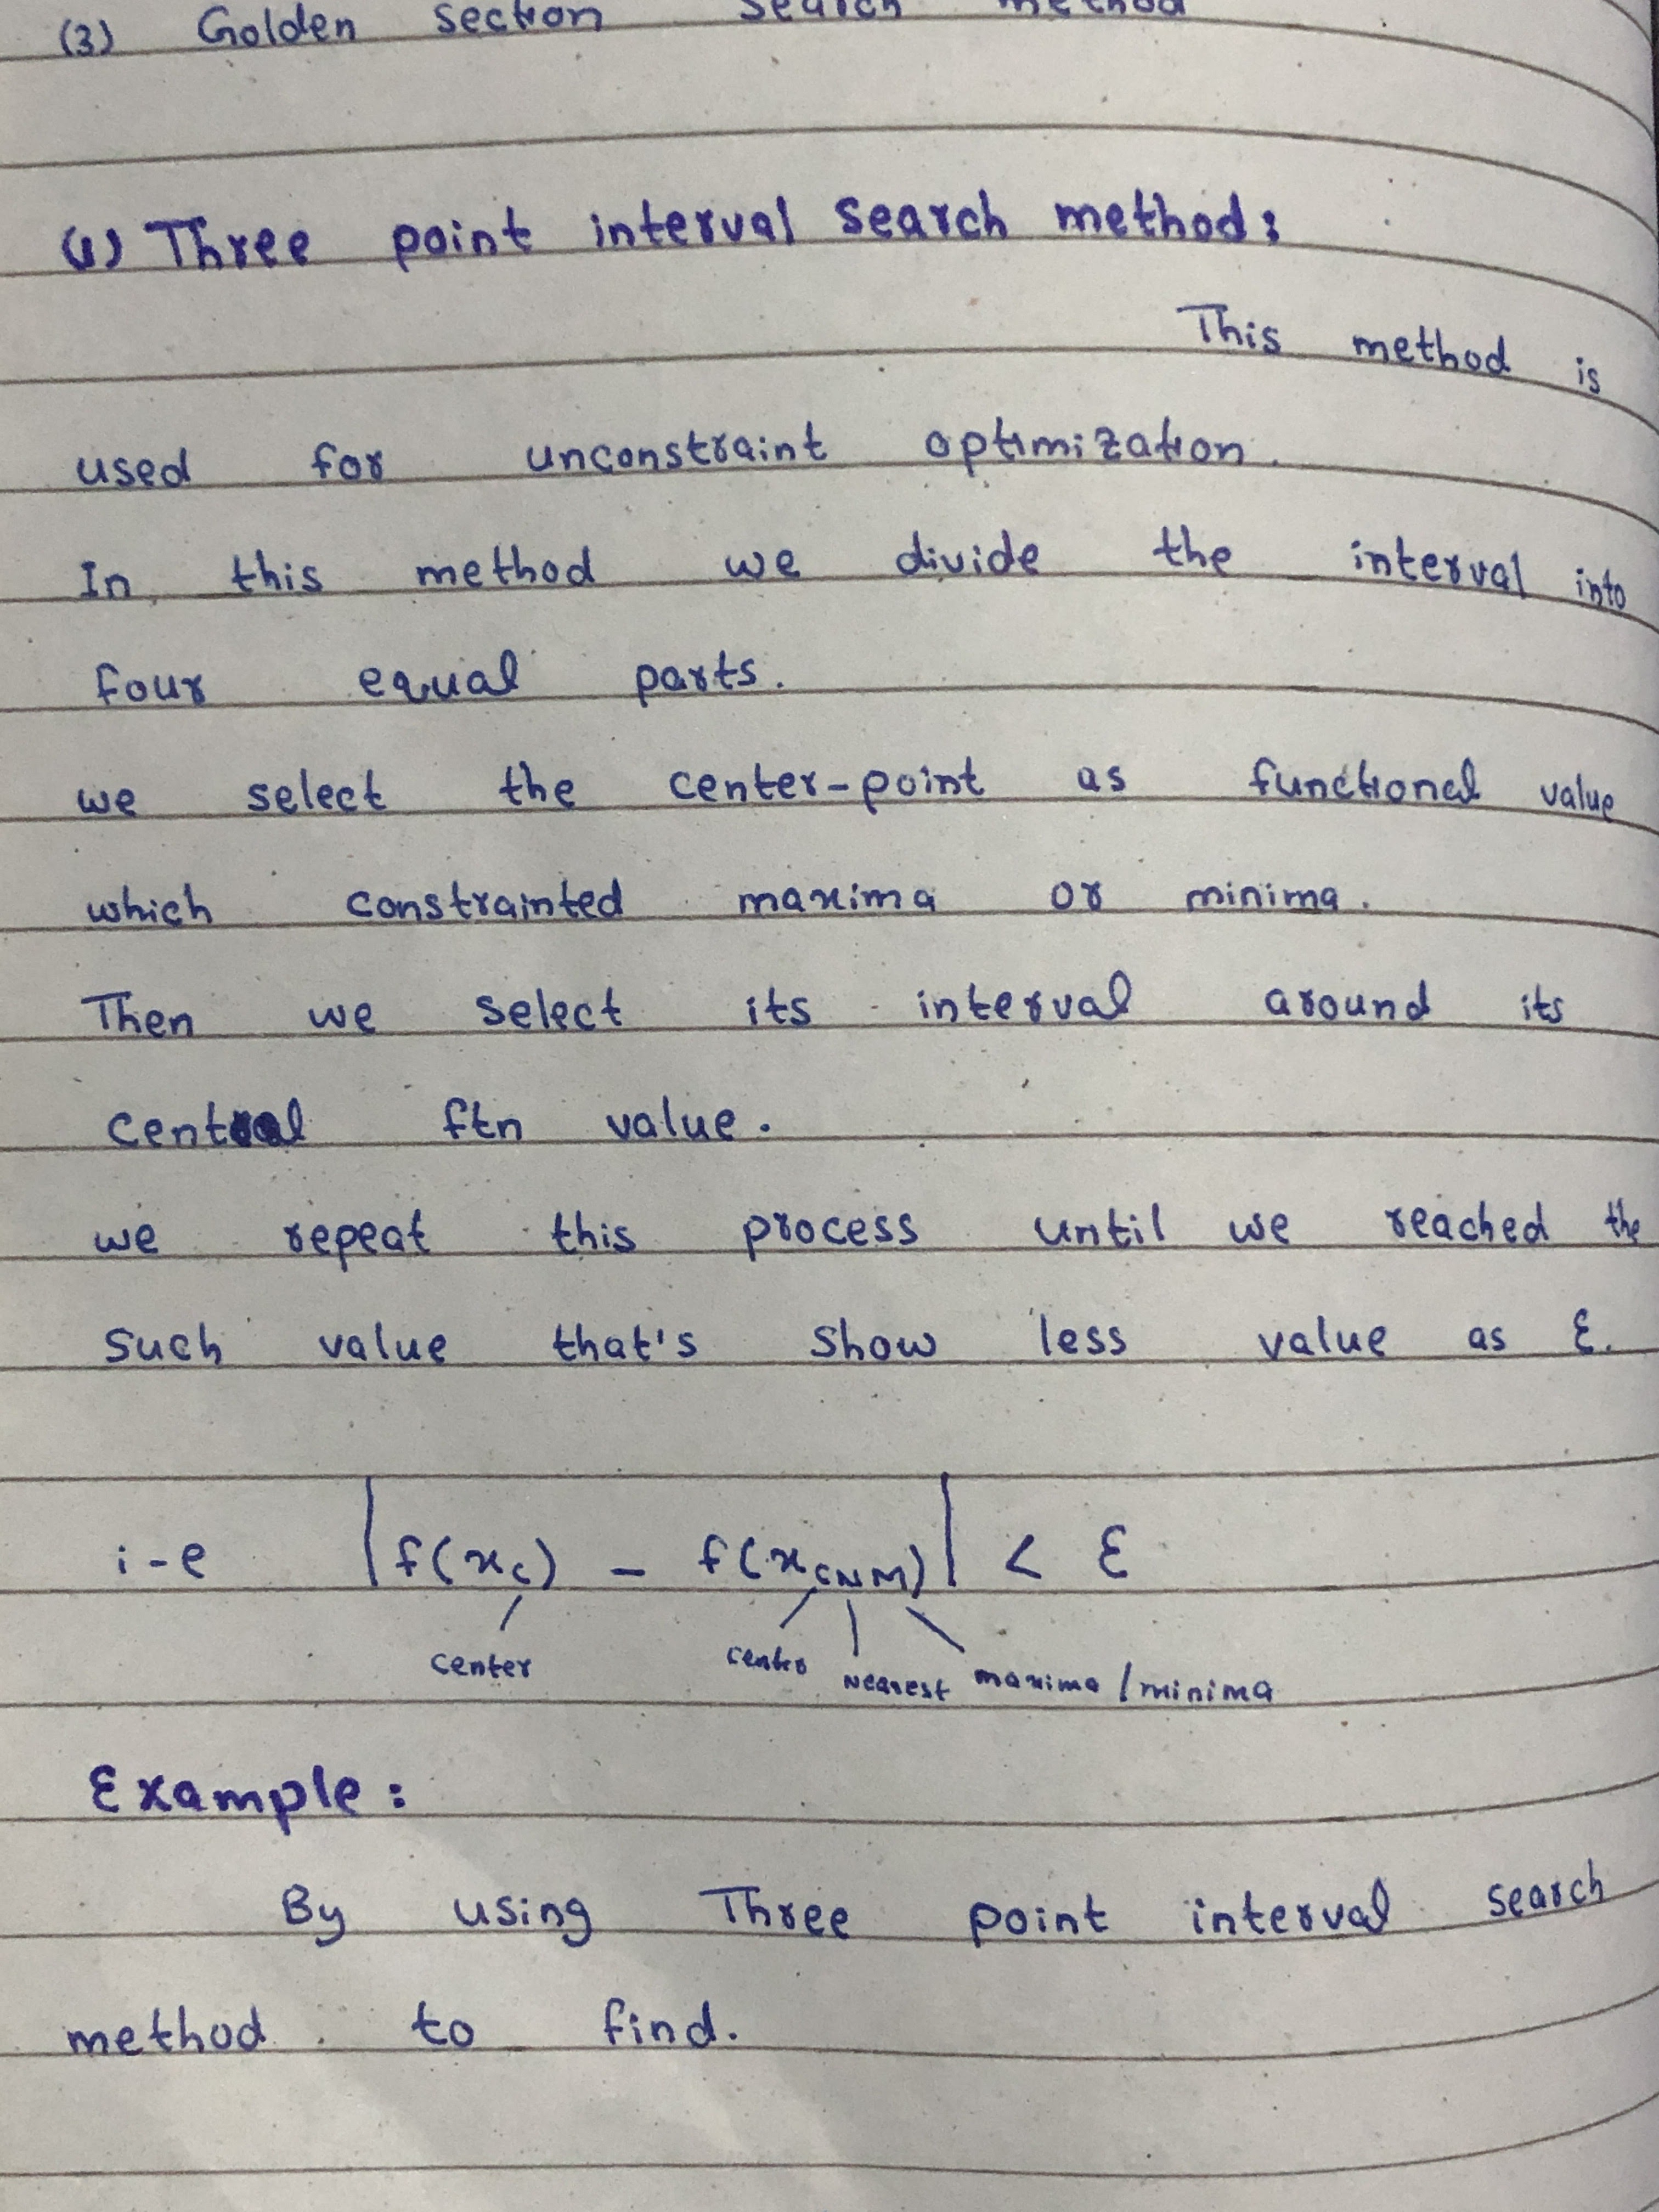 (3) Golden section search method
(1) Three point interval search method:
This method is
used for unconstraint optimization.
In this method we divide the interval into
four equal parts.
we select the center-point as functional value
which constrainted maxima or minima.
Then we select its interval around its
central ftn value.
we repeat this process until we reached the
such value that's show less value as ε.
i-e |f(x_c) - f(x_CNM)| < ε
center centro Nearest maxima / minima
Example:
By using Three point interval search
method to find.